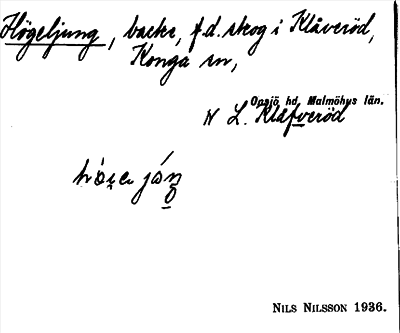 Högeljung, backe, f.d. skog i Klåveröd,
Konga sn,
Onsjö hd. Malmöhus län.
N L. Klåfveröd
NILS NILSSON 1936.